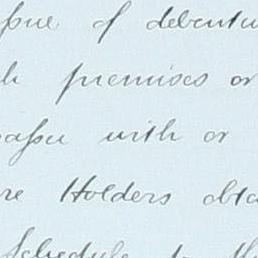 issue of debentu
h premises or
passu with or
re Holders obta
Schedule to the